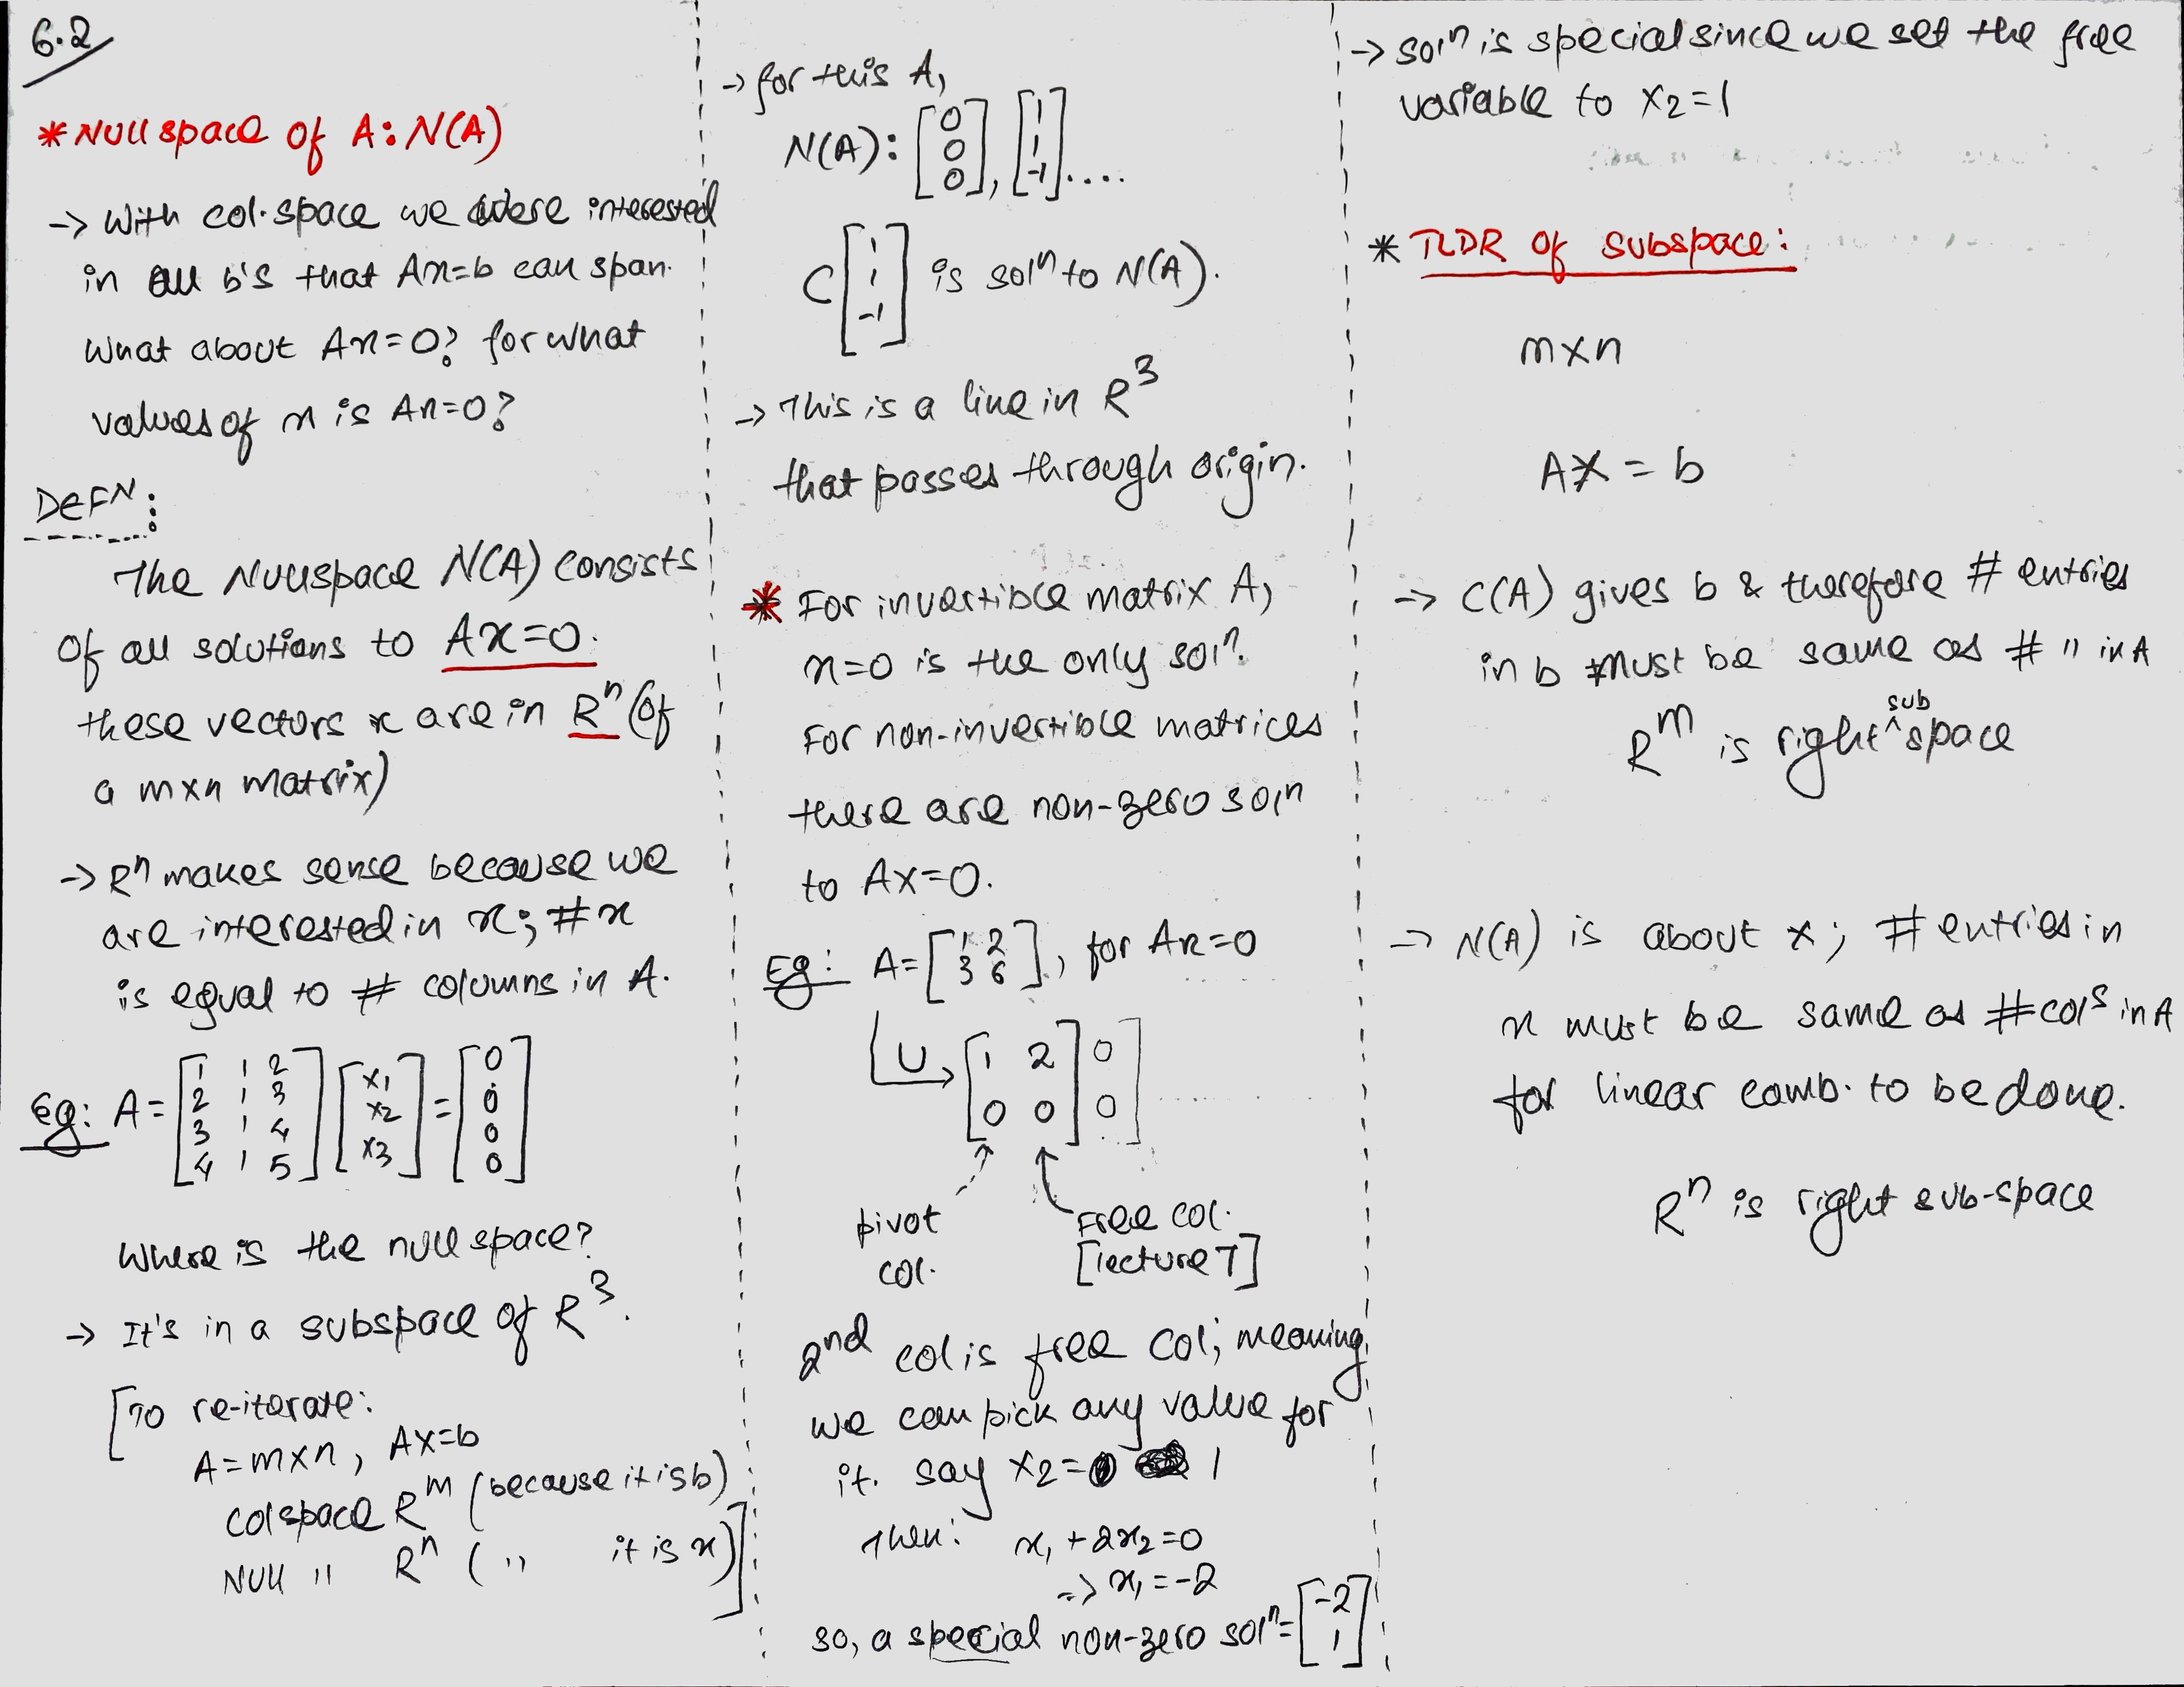 6.2
* Nullspace of A: N(A)
-> With col. space we were interested
in all b's that Ax=b can span.
What about Ax=0? for what
values of x is Ax=0?
DEFN:
The Nullspace N(A) consists
of all solutions to Ax=0.
these vectors x are in Rⁿ (of
a mxn matrix)
-> Rⁿ makes sense because we
are interested in x; #x
is equal to # columns in A.
Eg: A = [1 1 2; 2 1 3; 3 1 4; 4 1 5] [x1; x2; x3] = [0; 0; 0; 0]
Where is the null space?
-> It's in a subspace of R³.
[To re-iterate:
A=mxn, Ax=b
colspace Rᵐ (because it is b)
Null " Rⁿ ( " it is x)]
-> for this A,
N(A): [0; 0; 0], [1; 1; -1]....
C[1; 1; -1] is solⁿ to N(A).
-> This is a line in R³
that passes through origin.
* For invertible matrix A,
x=0 is the only solⁿ.
For non-invertible matrices
there are non-zero solⁿ
to Ax=0.
Eg: A=[1 2; 3 6], for Ax=0
U -> [1 2; 0 0] 0; 0]
pivot
col.
Free col.
[lecture 7]
2nd col is free col; meaning
we can pick any value for
it. say x2= 1
Then: x1+2x2=0
=> x1=-2
so, a special non-zero solⁿ=[-2; 1]
-> solⁿ is special since we set the free
variable to x2=1
* TLDR of subspace:
mxn
Ax = b
-> C(A) gives b & therefore # entries
in b must be same as # " in A
Rᵐ is right ^sub space
-> N(A) is about x; # entries in
x must be same as #colˢ in A
for linear comb. to be done.
Rⁿ is right sub-space